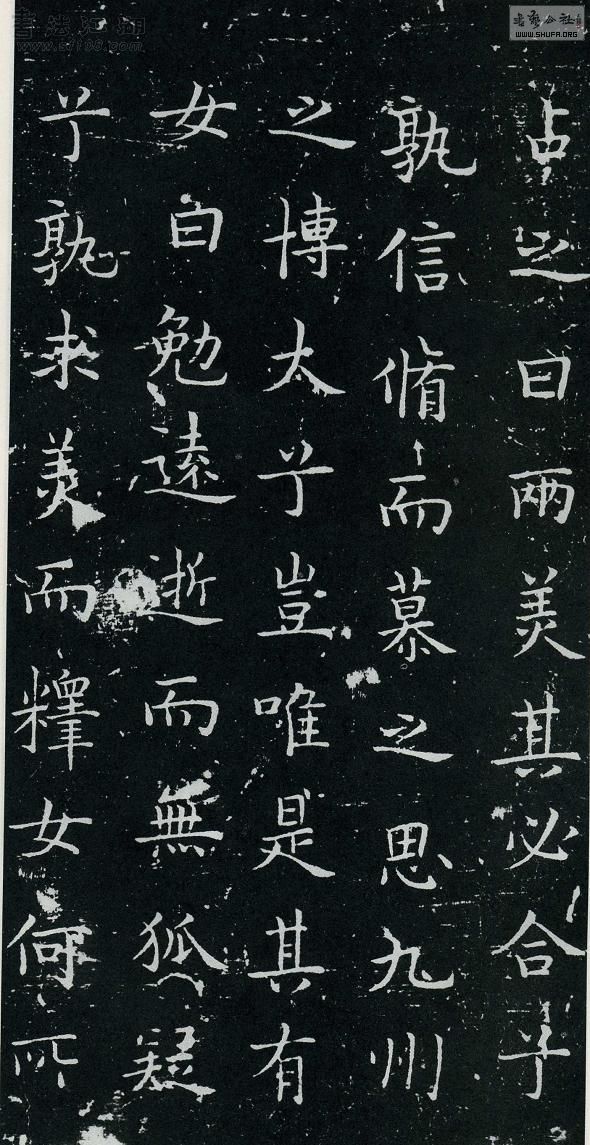 占之曰兩美其必合兮
孰信脩而慕之思九州
之博大兮豈唯是其有
女曰勉遠逝而無狐疑
兮孰求美而釋女何所
書法江湖
書藝公社
WWW.SHUFA.ORG